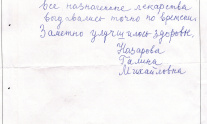 Все назначенные лекарства
выдавались точно по времени.
Заметно улучшилось здоровье.
Назарова
Галина
Михайловна